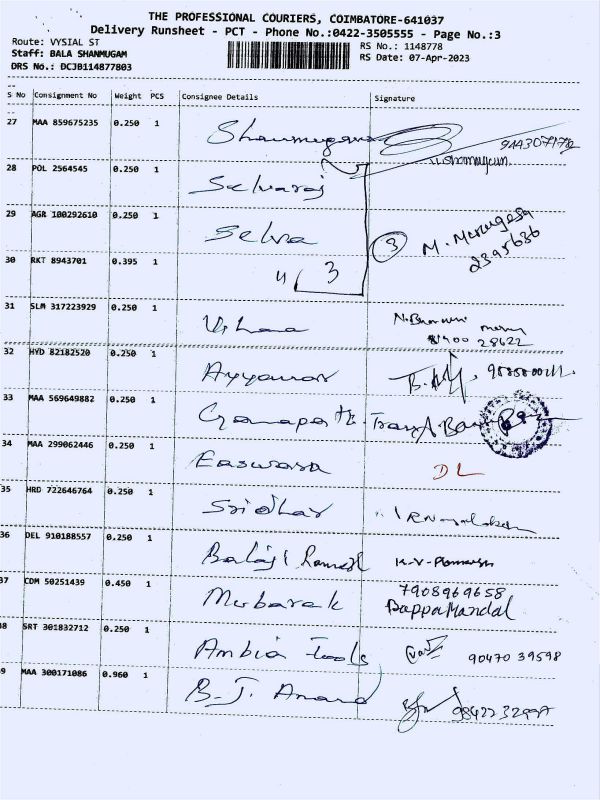 THE PROFESSIONAL COURIERS, COIMBATORE-641037
Delivery Runsheet - PCT - Phone No.:0422-3505555 - Page No.:3
Route: VYSIAL ST
Staff: BALA SHANMUGAM
DRS No.: DCJB114877803
RS No.: 1148778
RS Date: 07-Apr-2023
S No Consignment No Weight PCS Consignee Details Signature
27 MAA 859675235 0.250 1
28 POL 2564545 0.250 1 Selvaraj
29 AGR 100292610 0.250 1 Selva 3 M. Murugesa
2395636
30 RKT 8943701 0.395 1 4 3
31 SLM 317223929 0.250 1
28622
32 HYD 82182520 0.250 1 Ayyanar
33 MAA 569649882 0.250 1
34 MAA 299062446 0.250 1 Easwara DL
35 HRD 722646764 0.250 1 Sridhar
36 DEL 910188557 0.250 1 Balaji Ramesh
37 CDM 50251439 0.450 1 Mubarak 7908969658
BappaMandal
38 SRT 301832712 0.250 1 Ambia tools 90470 39598
39 MAA 300171086 0.960 1 B. J. Anand